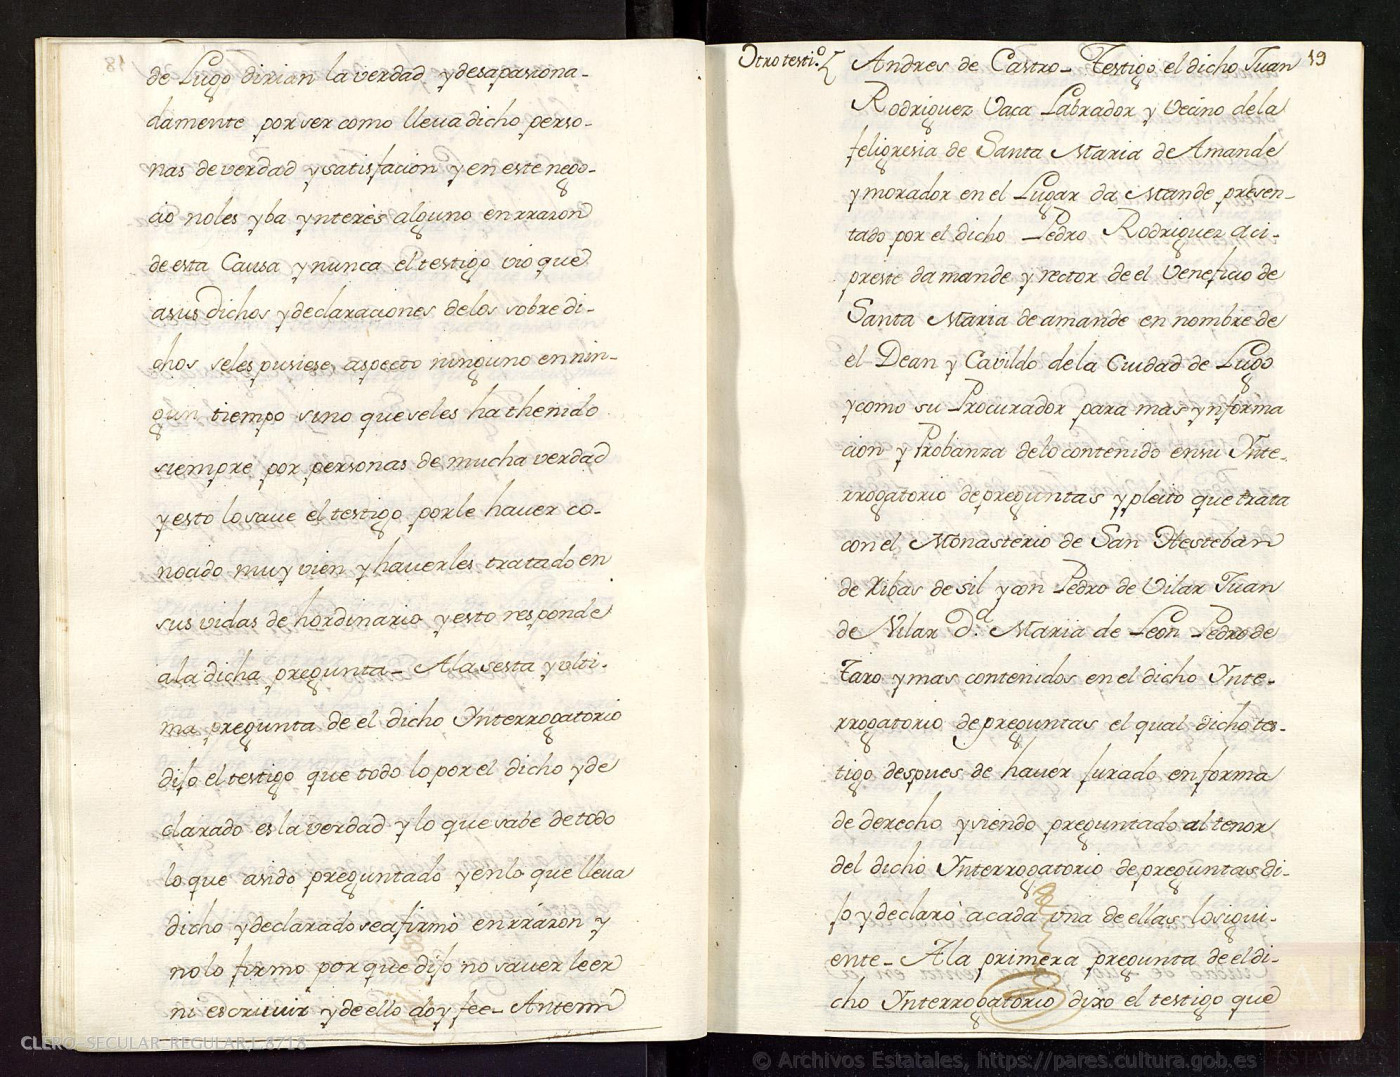 de Lugo dirian la verdad ydesapasiona-
damente por ser como lleva dicho perso-
nas de verdad y satisfacion y en este nego-
cio noles yba ynteres alguno en rrazon
de esta Causa y nunca el testigo vio que
asus Dichos y declaraciones delos sobre di-
chos seles pusiese aspecto ninguno en nin-
gun tiempo sino que seles ha thenido
siempre por personas de mucha verdad
y esto lo save el testigo por le haver co-
nocido muy vien y haverles tratado en
sus vidas de hordinario y esto responde
ala dicha pregunta_ Ala sesta y ulti-
ma pregunta de el dicho Ynterrogatorio
dijo el testigo que todo lo por el dicho y de
clarado es la verdad y lo que sabe de todo
lo que asido preguntado y en lo que lleva
dicho y declarado se afirmó en rrazon y
nolo firmo por que dijo no saver leer
ni escriuir y de ello doy fee_ Antemi
Otro testi.º Andres de Castro_ Testigo el dicho Juan
19
Rodriguez Vaca Labrador y Vecino dela
feligresia de Santa Maria de Amande
y morador en el Lugar da Mande presen-
tado por el dicho Pedro Rodriguez Aci-
preste da mande y rector de el Veneficio de
Santa Maria de amande en nombre de
el Dean y Cavildo de la Ciudad de Lugo
y como su Procurador para mas ynforma
cion y Probanza delo contenido en su Ynte-
rrogatorio de preguntas y pleito que trata
con el Monasterio de San Esteban
de Ribas de sil y con Pedro de Vilar Juan
de Vilar D.ª Maria de Leon Pedro de
Taro y mas contenidos en el dicho Ynte-
rrogatorio de preguntas el qual dicho tes-
tigo despues de haver jurado en forma
de derecho y siendo preguntado al tenor
del dicho Ynterrogatorio de preguntas di-
jo y declaró a cada una de ellas lo sigui-
ente_ Ala primera pregunta de el di-
cho Ynterrogatorio dixo el testigo que
CLERO_SECULAR_REGULAR,L.8718
© Archivos Estatales, https://pares.cultura.gob.es
ARCHIVOS
ESTATALES